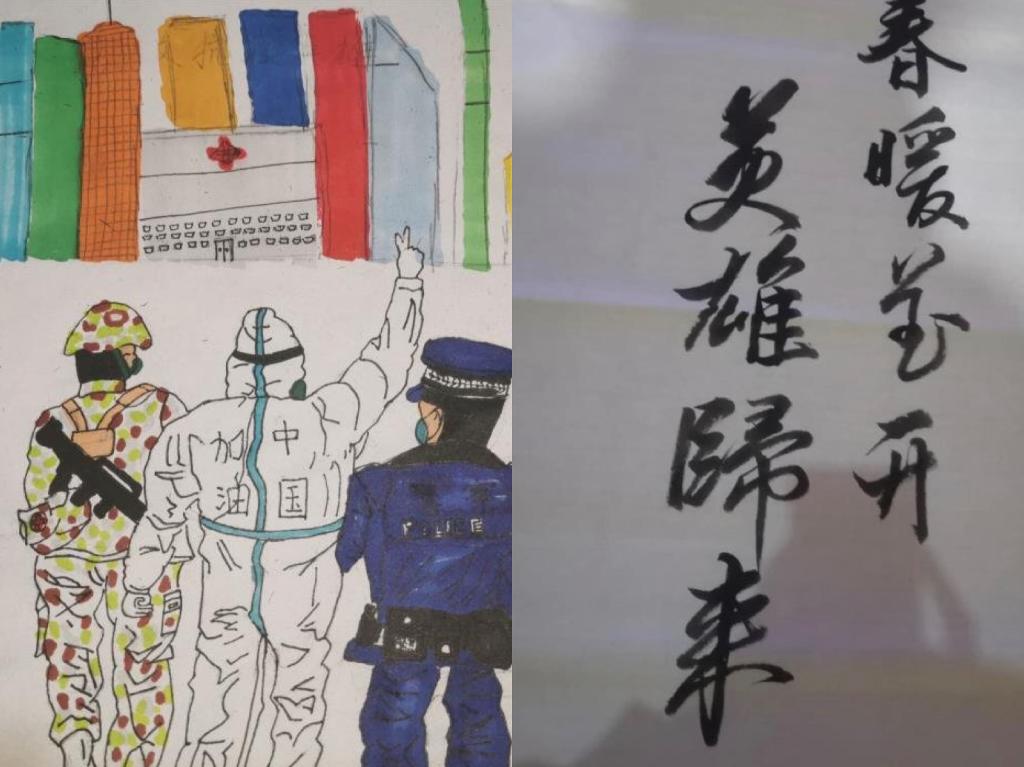 中国
加油
POLICE
春暖花开
英雄歸来